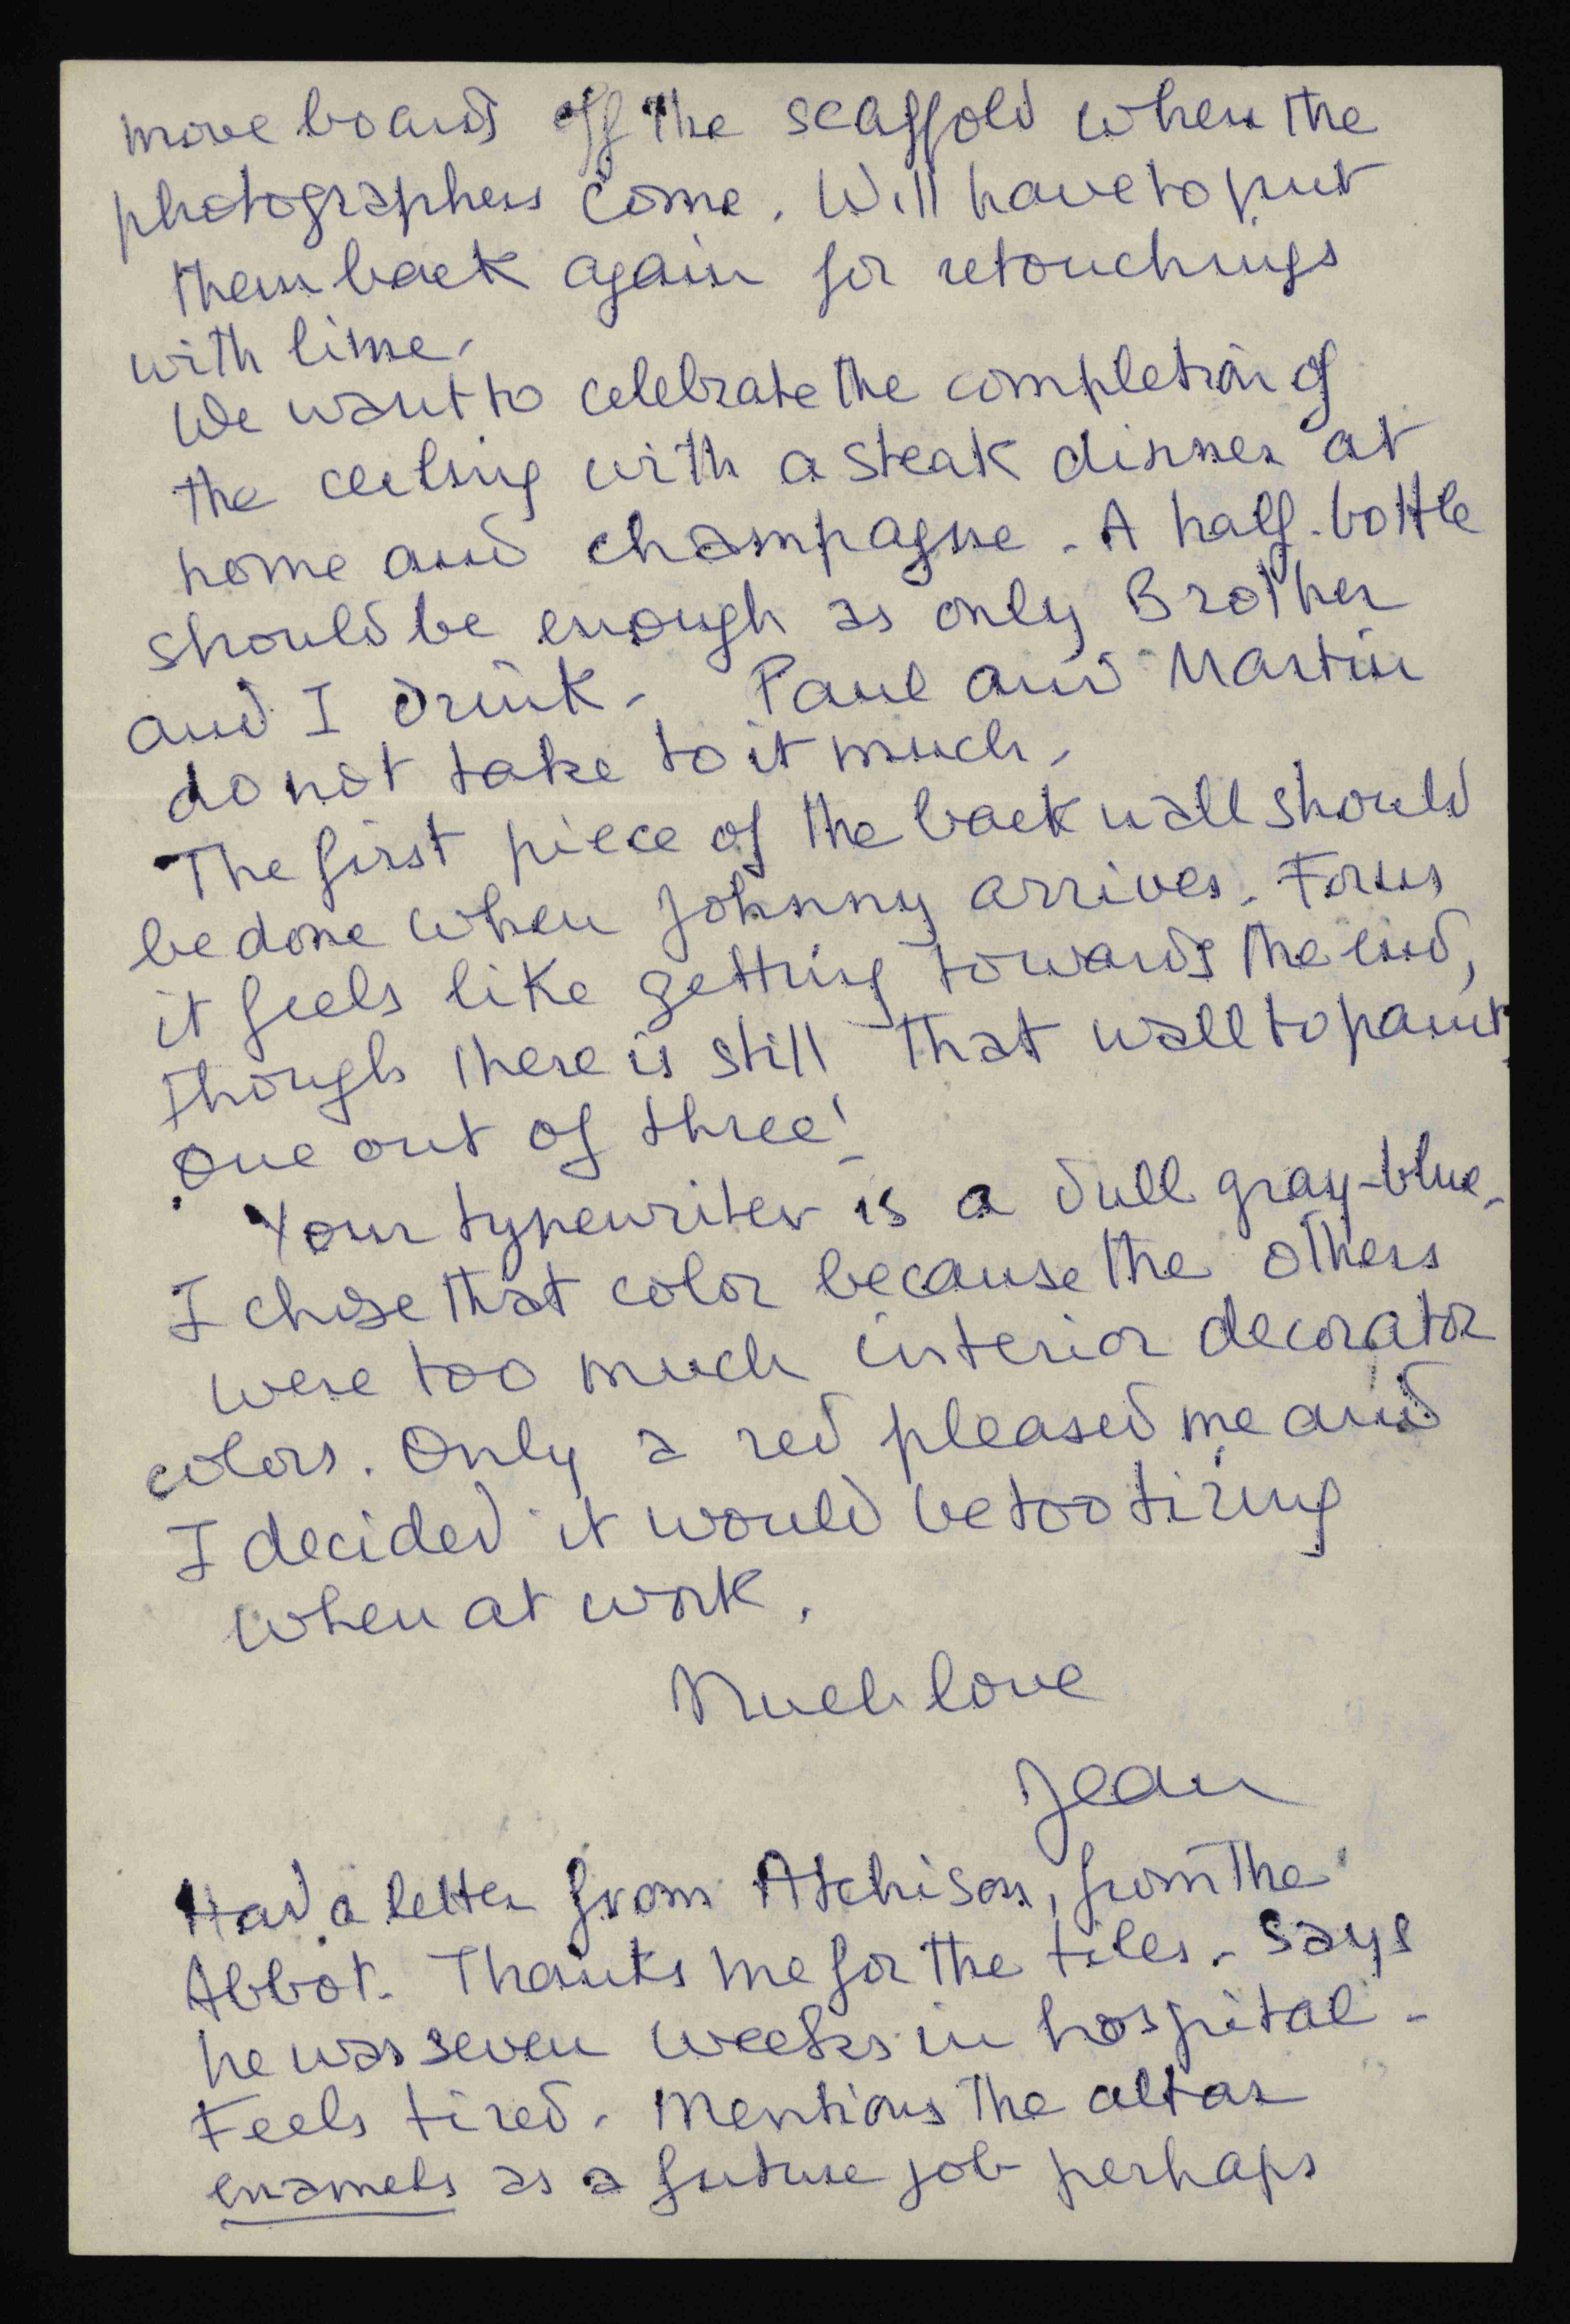 move boards off the scaffold when the
photographers come. Will have to put
them back again for retouchings
with lime.
We want to celebrate the completion of
the ceiling with a steak dinner at
home and champagne. A half-bottle
should be enough as only Brother
and I drink. Paul and Martin
do not take to it much.
The first piece of the back wall should
be done when Johnny arrives. For us
it feels like getting towards the end,
though there is still that wall to paint,
one out of three!
Your typewriter is a dull gray-blue.
I chose that color because the others
were too much interior decorator
colors. Only a red pleased me and
I decided it would be too tiring
when at work.
Much love
Jean
Had a letter from Atchison, from the
Abbot. Thanks me for the tiles. Says
he was seven weeks in hospital.
Feels tired. Mentions the altar
enamels as a future job perhaps